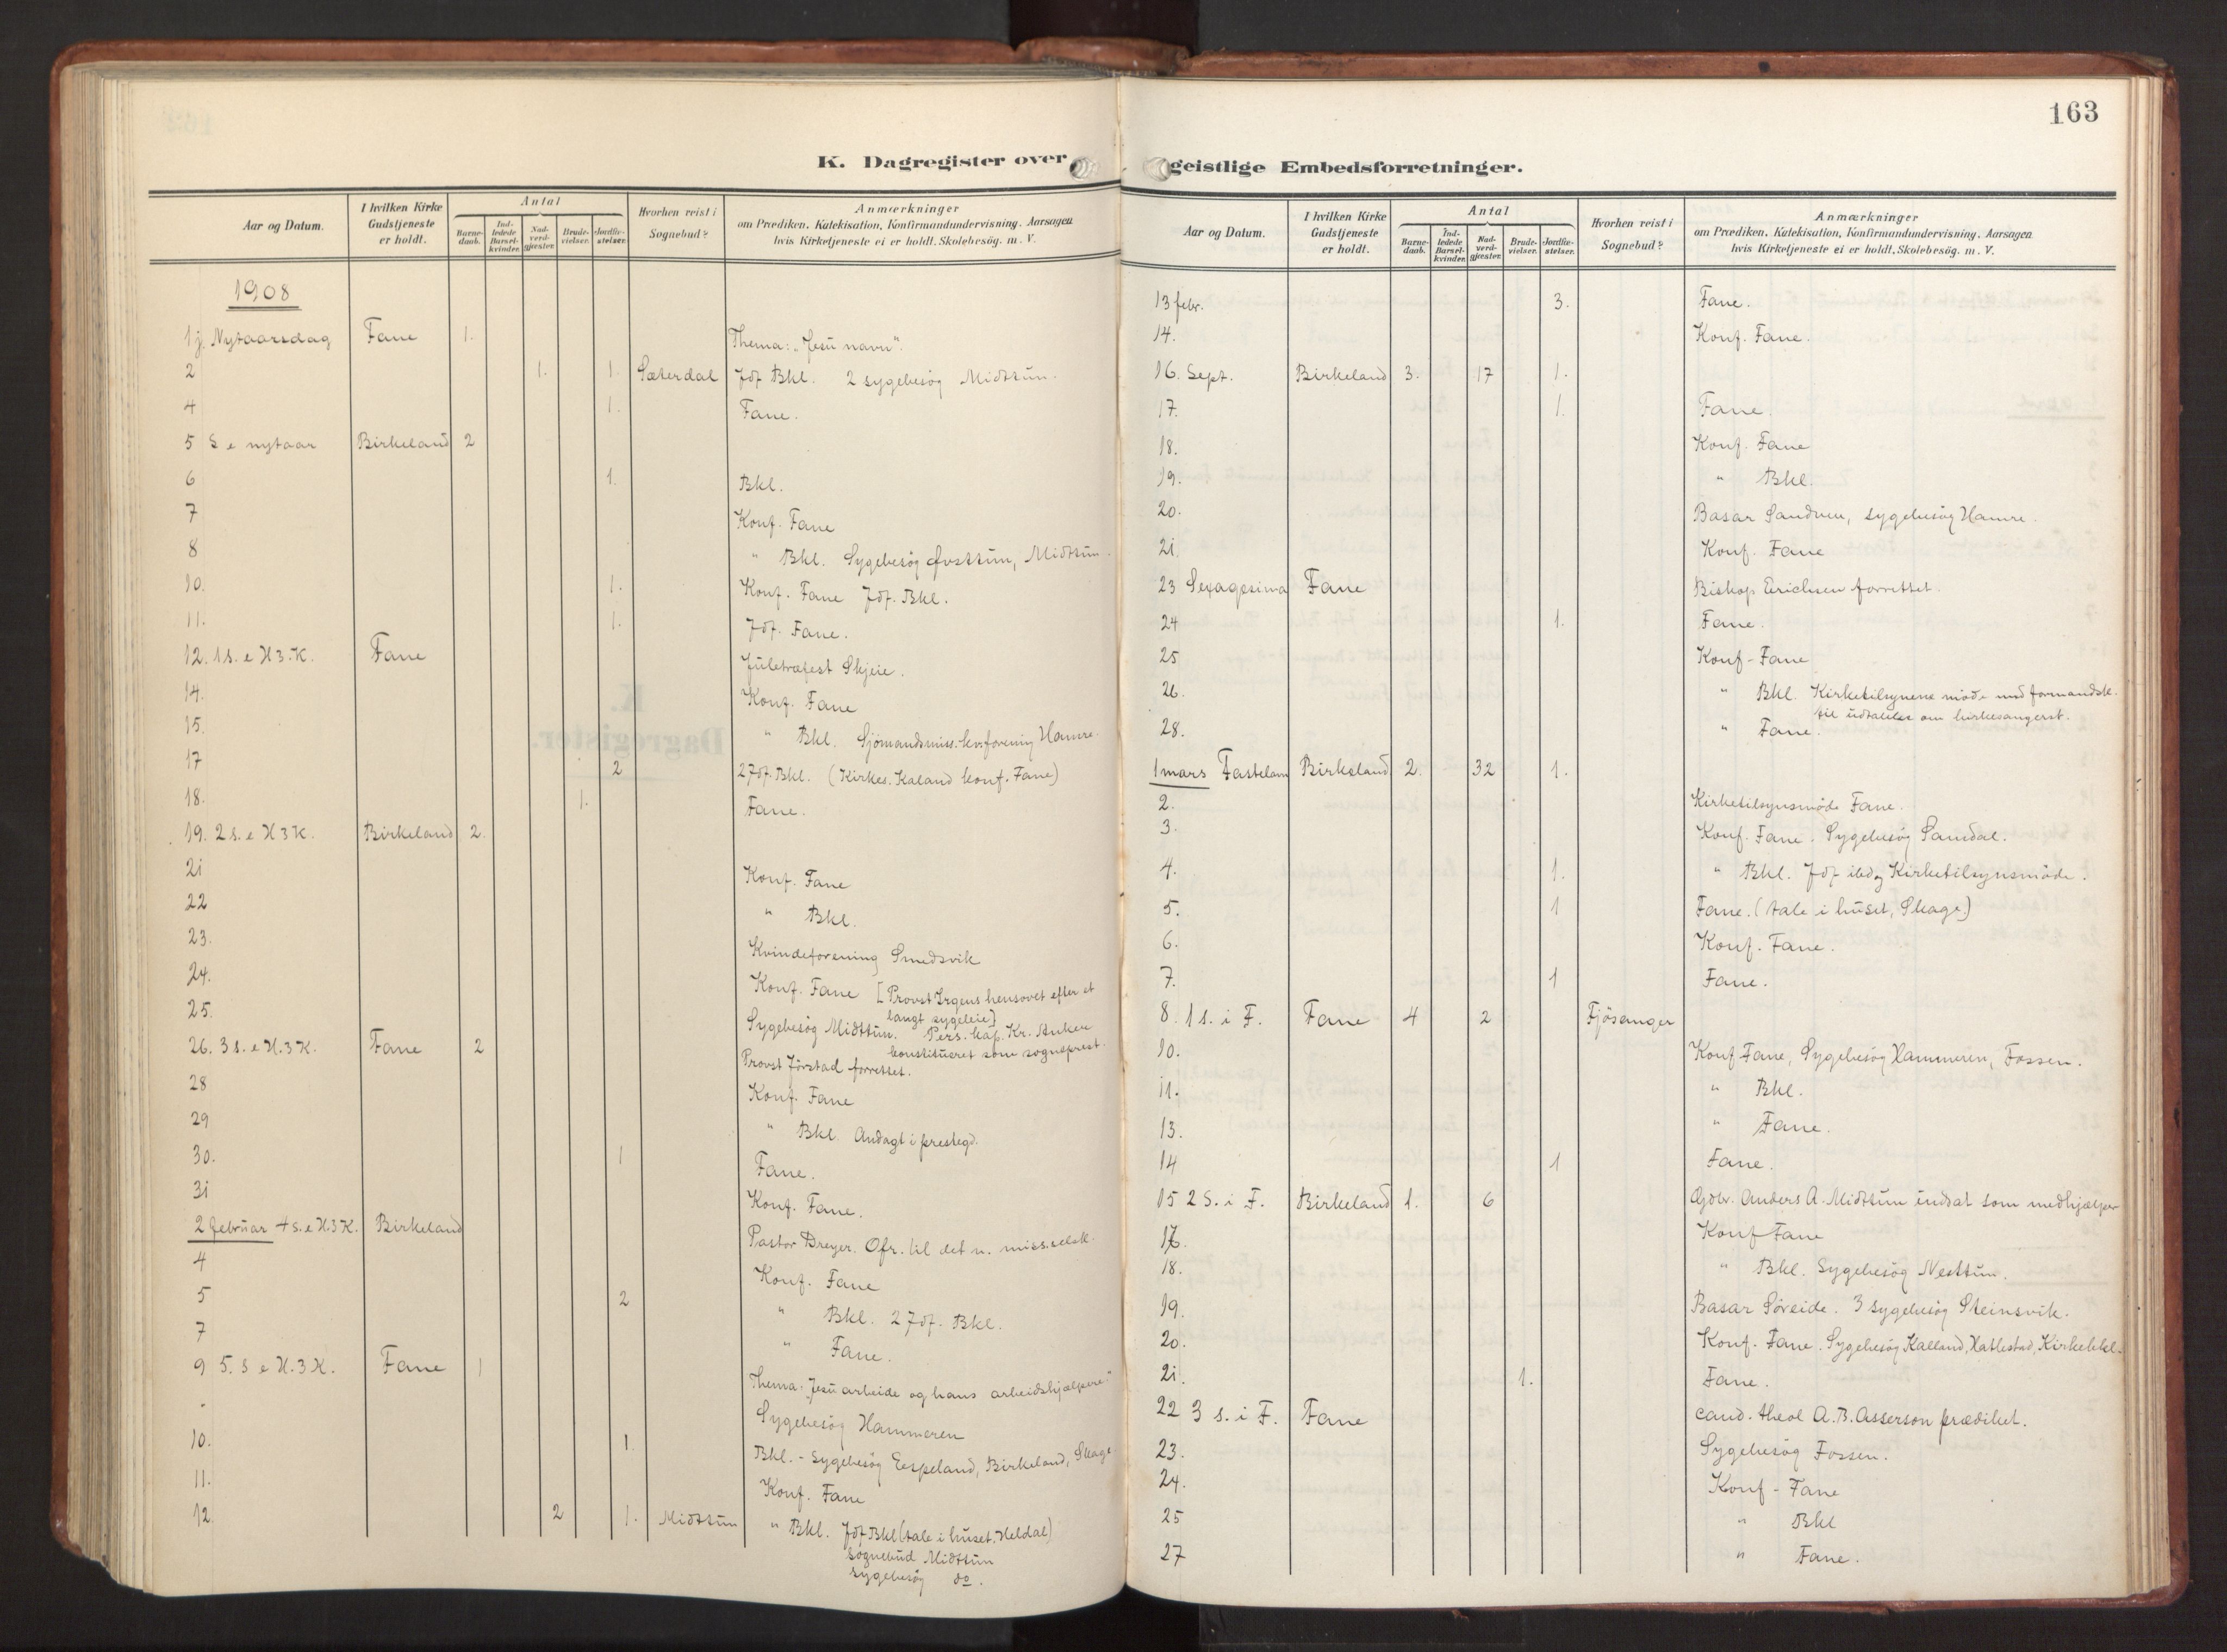 163
K. Dagregister over geistlige Embedsforretninger.
Aar og Datum. I hvilken Kirke Gudstjeneste er holdt. Antal Barnedaab. Indledede Barselkvinder. Nadverdgjester. Brudevielser. Jordfæstelser. Hvorhen reist i Sognebud? Anmærkninger om Prædiken, Katekisation, Konfirmandundervisning, Aarsagen hvis Kirketjeneste ei er holdt, Skolebesög. m. V.
1908
1 j. Nytaarsdag Fane 1. Thema: "Jesu navn".
2 1. 1. Sæterdal Jdf Bkl. 2 sygebesög Midttun.
4 1. Fane.
5 S e nytaar Birkeland 2
6 1. Bkl.
7 Konf. Fane
8 " Bkl. Sygebesög Øvsttun, Midttun.
10. 1. Konf. Fane Jdf. Bkl.
11. 1. Jdf. Fane.
12. 1 s. e H 3. K. Fane Juletræfest Skjeie.
14. Konf. Fane
15. " Bkl. Sjömandsmiss. kv.forening Hamre.
17 2 2 Jdf. Bkl. (Kirkes. Kaland konf. Fane)
18. 1. Fane.
19. 2 s. e H 3 K. Birkeland 2.
21 Konf. Fane
22 " Bkl.
23. Kvindeforening Smedsvik
24. Konf. Fane [Provst Irgens hensovet efter et
langt sygeleie]
25. Sygebesög Midttun. Pers. kap. Kr. Anker
konstitueret som sogneprest.
26. 3 s. e H. 3 K. Fane 2 Provst Jörstad forrettet.
28 Konf. Fane
29 " Bkl. Andagt i prestegd.
30. 1 Fane.
31 Konf. Fane.
2 februar 4 s. e H. 3 K. Birkeland Pastor Dreyer. Ofr. til det n. miss.selsk.
4 Konf. Fane
5 2 " Bkl. 2 Jdf. Bkl.
7 " Fane.
9 5. s e H. 3 K. Fane 1 Thema: "Jesu arbeide og hans arbeidshjælpere."
- Sygebesög Hammeren
10. 1. Bkl. - sygebesög Espeland, Birkeland, Skage
11. Konf. Fane
12. 2 1. Midttun " Bkl. Jdf Bkl (tale i huset. Heldal)
sognebud Midttun
sygebesög do.
Aar og Datum. I hvilken Kirke Gudstjeneste er holdt. Antal Barnedaab. Indledede Barselkvinder. Nadverdgjester. Brudevielser. Jordfæstelser. Hvorhen reist i Sognebud? Anmærkninger om Prædiken, Katekisation, Konfirmandundervisning, Aarsagen hvis Kirketjeneste ei er holdt, Skolebesög. m. V.
13 febr. 3. Fane.
14. Konf. Fane.
16. Sept. Birkeland 3. 17 1.
17. 1. Fane.
18. Konf. Fane
19. " Bkl.
20. Basar Sandven, sygebesög Hamre.
21. Konf. Fane
23 Sexagesima Fane Biskop Erichsen forrettet.
24 1. Fane.
25 Konf - Fane
26. " Bkl. Kirketilsynene möde med formandsk.
til udtalelse om kirkesangerst.
28. " Fane.
1 mars Fastelavn Birkeland 2. 32 1.
2. Kirketilsynsmöde Fane.
3. Konf. Fane. Sygebesög Sandal.
4. 1. " Bkl. Jdf ibd og Kirketilsynsmöde.
5. 1 Fane. (tale i huset, Skage)
6. Konf. Fane.
7. 1 Fane.
8. 1 s. i F. Fane 4 2 Fjösanger
10. Konf Fane, Sygebesög Hammeren, Fossen.
11. " Bkl.
13. " Fane.
14 1 Fane.
15 2 S. i F. Birkeland 1. 6 Gdbr. Anders A. Midttun indsat som medhjælper
17. Konf Fane
18. " Bkl. Sygebesög Nesttun.
19. Basar Söreide. 3 sygebesög Steinsvik.
20. Konf. Fane. Sygebesög Kalland, Hatlestad, Kirkebkl.
21. 1. Fane.
22 3 s. i F. Fane cand. theol A. B. Asserson prædiket.
23. Sygebesög Fossen.
24. Konf - Fane
25 " Bkl
27 " Fane.